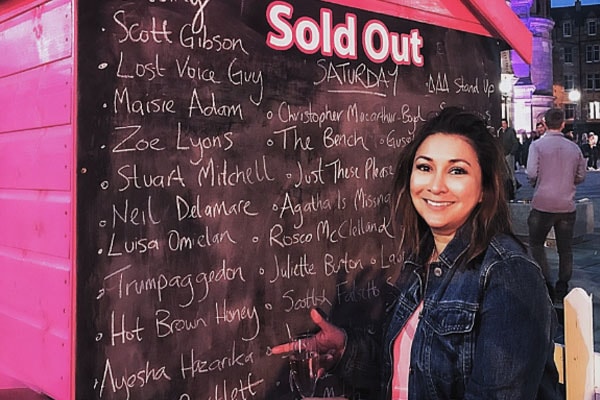 Sold Out
Scott Gibson
Lost Voice Guy
Maisie Adam
Zoe Lyons
Stuart Mitchell
Neil Delamare
Luisa Omielan
Trumpaggedon
Hot Brown Honey
Ayesha Hazarika
SATURDAY
Christopher Macarthur-Boyd
The Bench
Just These Please
Agatha Is Missing
Rosco McClelland
Juliette Burton
Scottish Falsetto
Stand Up